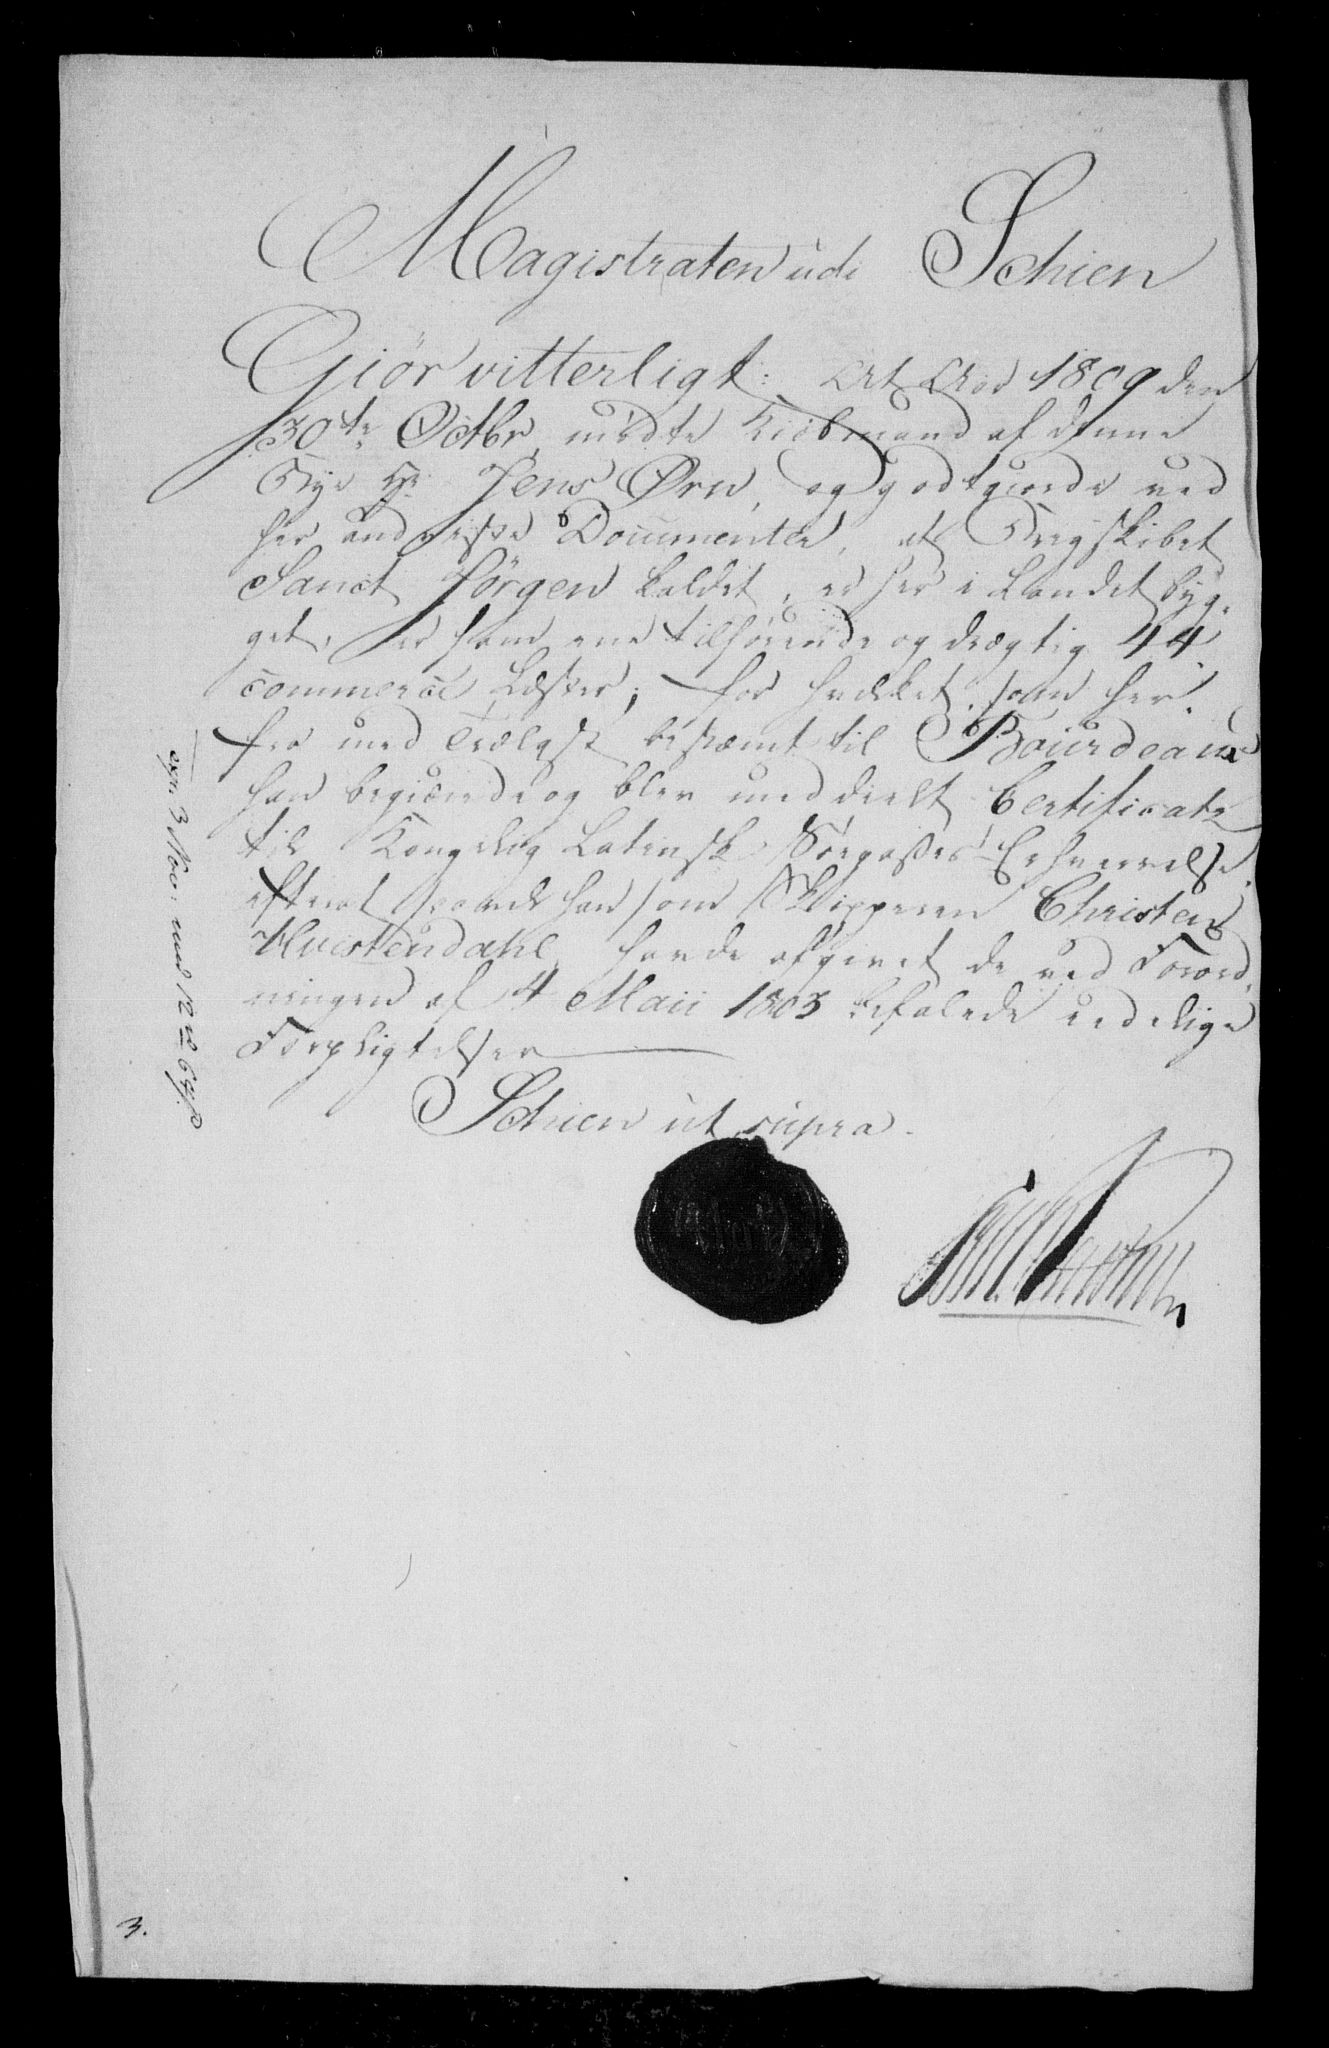 Magistraten udi Schien
Giör vitterligt: At Aar 1809 den
30te Octbr mödte Kiöbmand af denne
Bye Hr Jens Ørn, og godtgiorde ved
her undviiste Documenter, at Brigskibet
Sanct Jörgen kaldet, er her i Landet byg-
get, er ham ene tilhörende og drægtig 44
commerce Læster; for hvilket, som her-
fra med Trælast bestemt til Bourdeaux
han begiærede og blev meddeelt Certificate
til Kongelig Latinsk Söepasses Erhvervelse,
efterat saavel han som Skipperen Christen
Hvistendahl havde afgivet de ved Forord-
ningen af 4 Maii 1803 befalede eedelige
Forpligtelser
Schien ut supra.
3 Nov. med 12 rd 64 s
3.